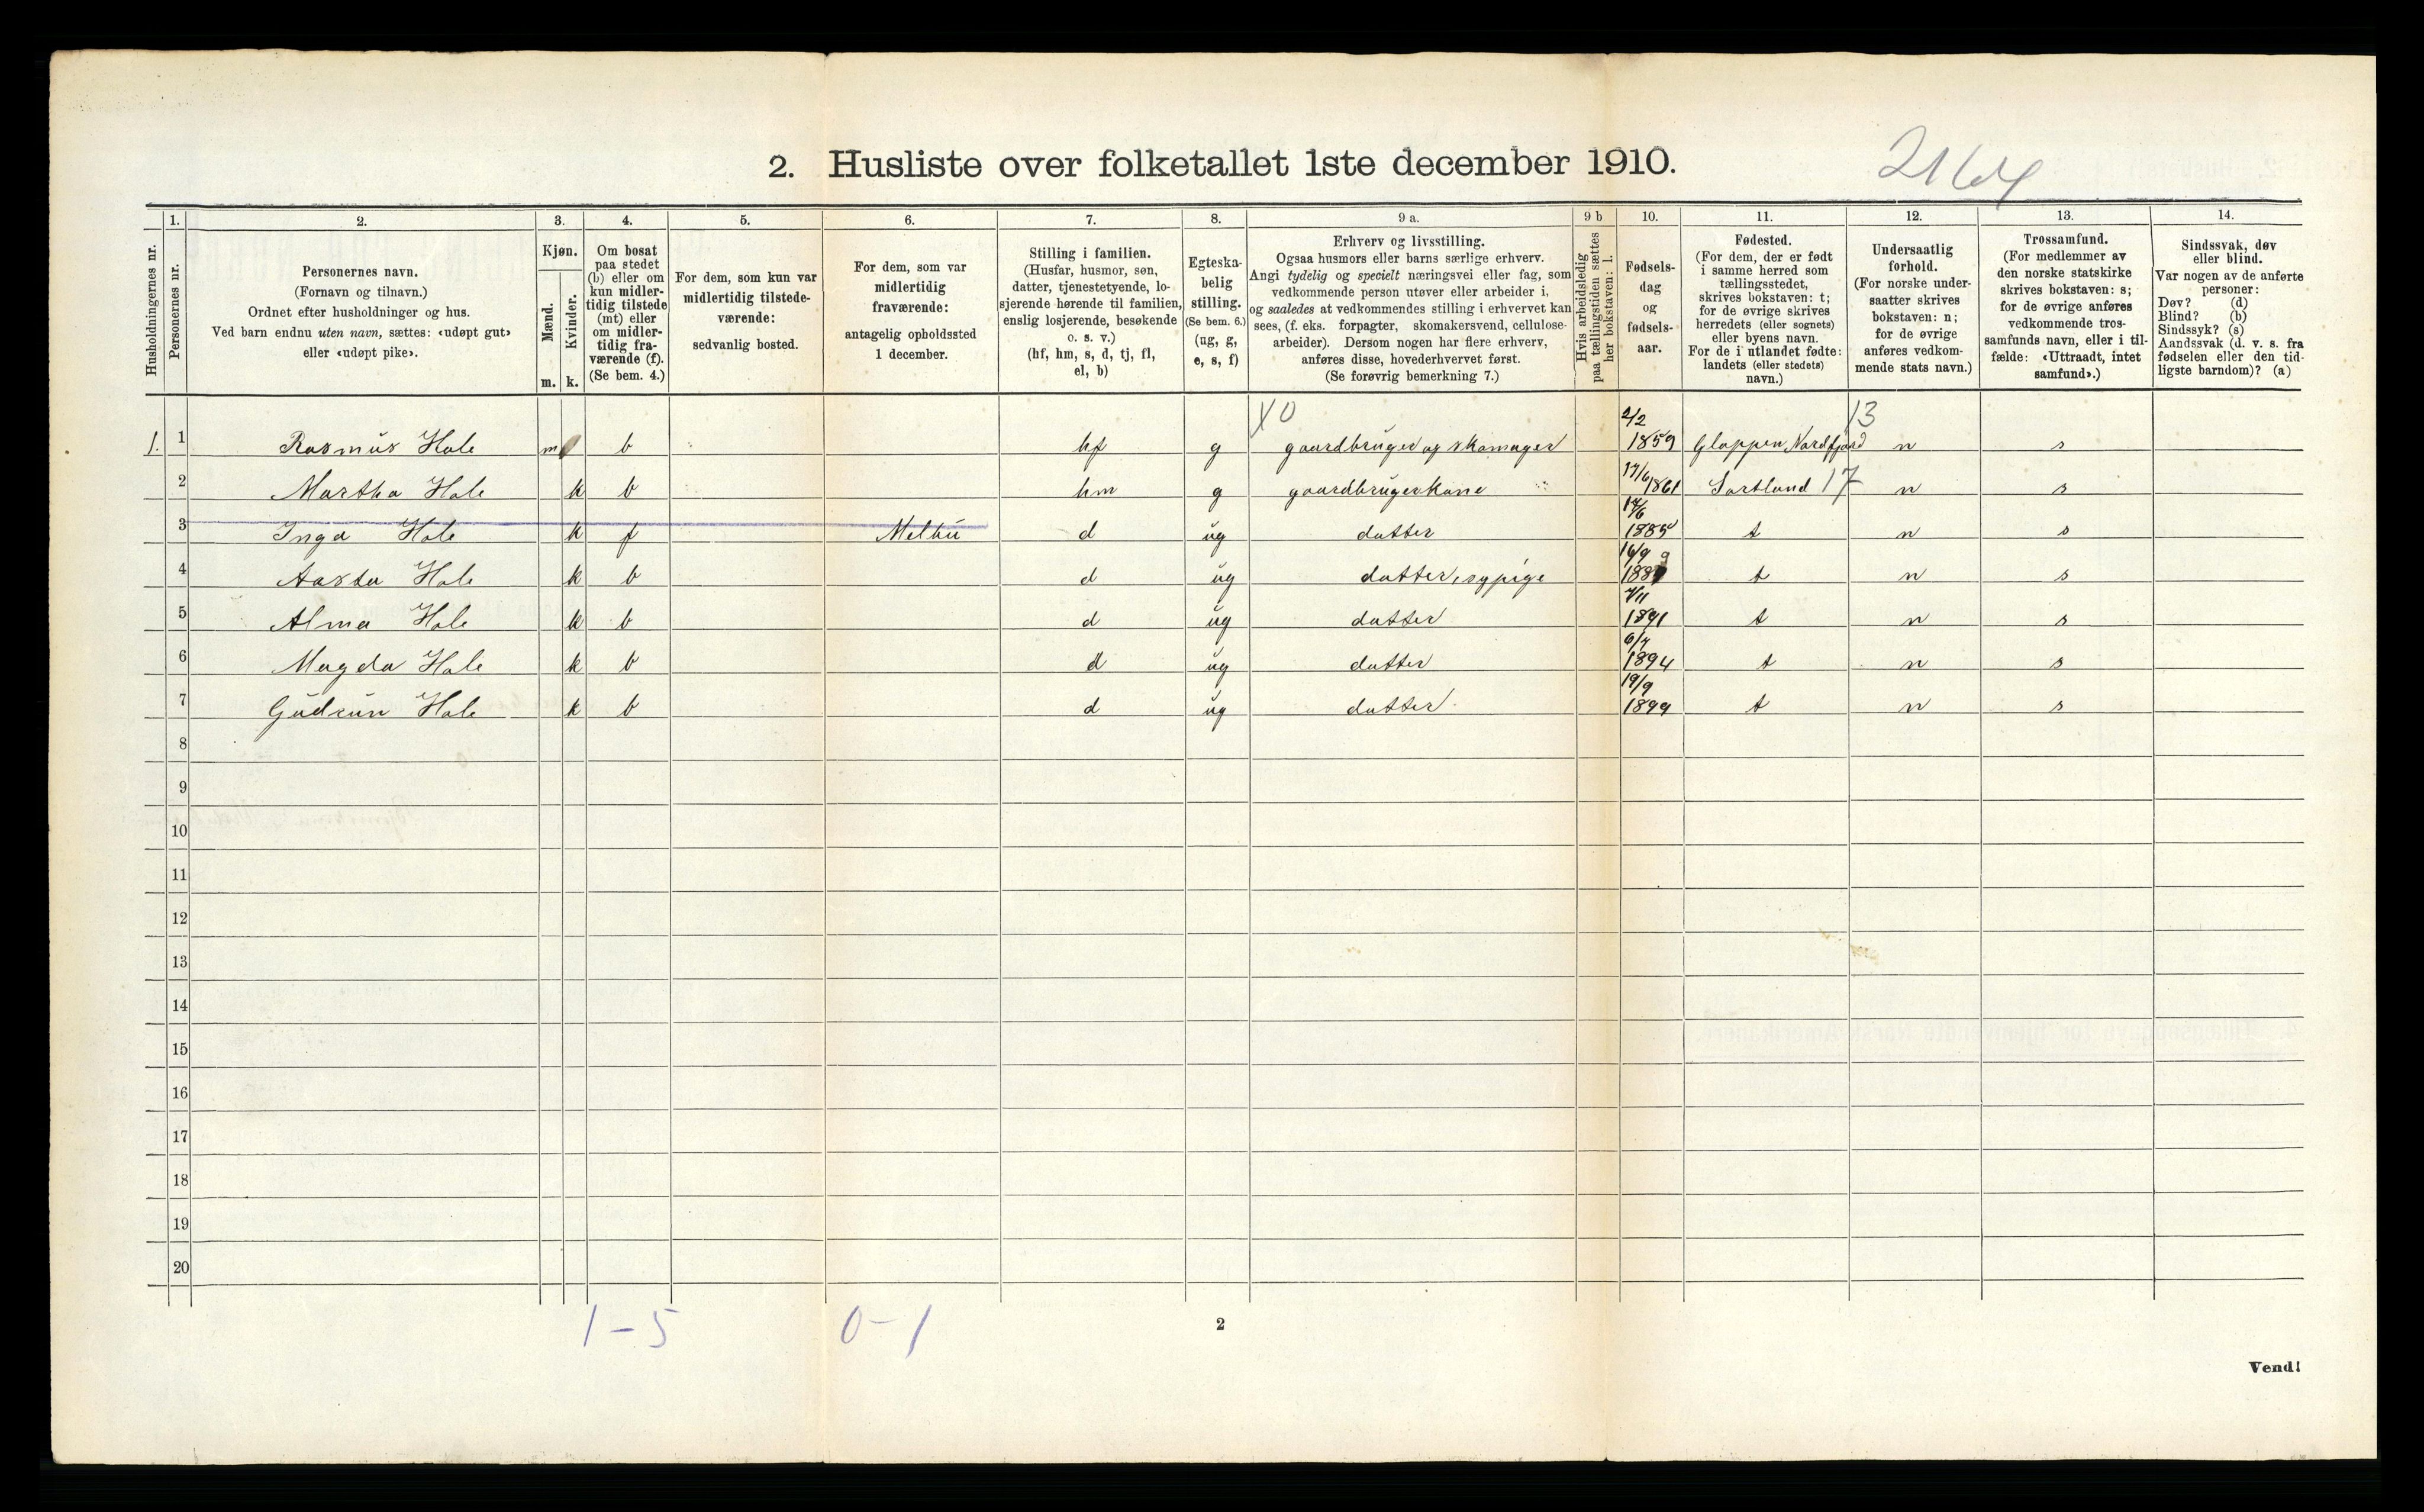 2. Husliste over folketallet 1ste december 1910.
2164
Husholdningernes nr.
1. Personernes nr.
2. Personernes navn.
(Fornavn og tilnavn.)
Ordnet efter husholdninger og hus.
Ved barn endnu uten navn, sættes: «udøpt gut»
eller «udøpt pike».
3. Kjøn.
Mænd. m.
Kvinder. k.
4. Om bosat
paa stedet
(b) eller om
kun midler-
tidig tilstede
(mt) eller
om midler-
tidig fra-
værende (f).
(Se bem. 4.)
5. For dem, som kun var
midlertidig tilstede-
værende:
sedvanlig bosted.
6. For dem, som var
midlertidig
fraværende:
antagelig opholdssted
1 december.
7. Stilling i familien.
(Husfar, husmor, søn,
datter, tjenestetyende, lo-
sjerende hørende til familien,
enslig losjerende, besøkende
o. s. v.)
(hf, hm, s, d, tj, fl,
el, b)
8. Egteska-
belig
stilling.
(Se bem. 6.)
(ug, g,
e, s, f)
9 a. Erhverv og livsstilling.
Ogsaa husmors eller barns særlige erhverv.
Angi tydelig og specielt næringsvei eller fag, som
vedkommende person utøver eller arbeider i,
og saaledes at vedkommendes stilling i erhvervet kan
sees, (f. eks. forpagter, skomakersvend, cellulose-
arbeider). Dersom nogen har flere erhverv,
anføres disse, hovederhvervet først.
(Se forøvrig bemerkning 7.)
9 b Hvis arbeidsledig
paa tællingstiden sættes
her bokstaven: l.
10. Fødsels-
dag
og
fødsels-
aar.
11. Fødested.
(For dem, der er født
i samme herred som
tællingsstedet,
skrives bokstaven: t;
for de øvrige skrives
herredets (eller sognets)
eller byens navn.
For de i utlandet fødte:
landets (eller stedets)
navn.)
12. Undersaatlig
forhold.
(For norske under-
saatter skrives
bokstaven: n;
for de øvrige
anføres vedkom-
mende stats navn.)
13. Trossamfund.
(For medlemmer av
den norske statskirke
skrives bokstaven: s;
for de øvrige anføres
vedkommende tros-
samfunds navn, eller i til-
fælde: «Uttraadt, intet
samfund».)
14. Sindssvak, døv
eller blind.
Var nogen av de anførte
personer:
Døv? (d)
Blind? (b)
Sindssyk? (s)
Aandssvak (d. v. s. fra
fødselen eller den tid-
ligste barndom)? (a)
1. 1 Rasmus Hole m b hf g gaardbruger og skomager 2/2 1859 Gloppen, Nordfjord 13 n s
2 Martha Hole k b hm g gaardbrugerkone 17/6 1861 Sortland 17 n s
3 Inga Hole k f Melbu d ug datter 1885 t n s
4 Aasta Hole k b d ug datter, sypige 16/9 t n s
5 Alma Hole k b d ug datter 1891 t n s
6 Magda Hole k b d ug datter 1894 t n s
7 Gudrun Hole k b d ug datter 19/9 1899 t n s
8
9
10
11
12
13
14
15
16
17
18
19
20
1 - 5 0 - 1
2
Vend!